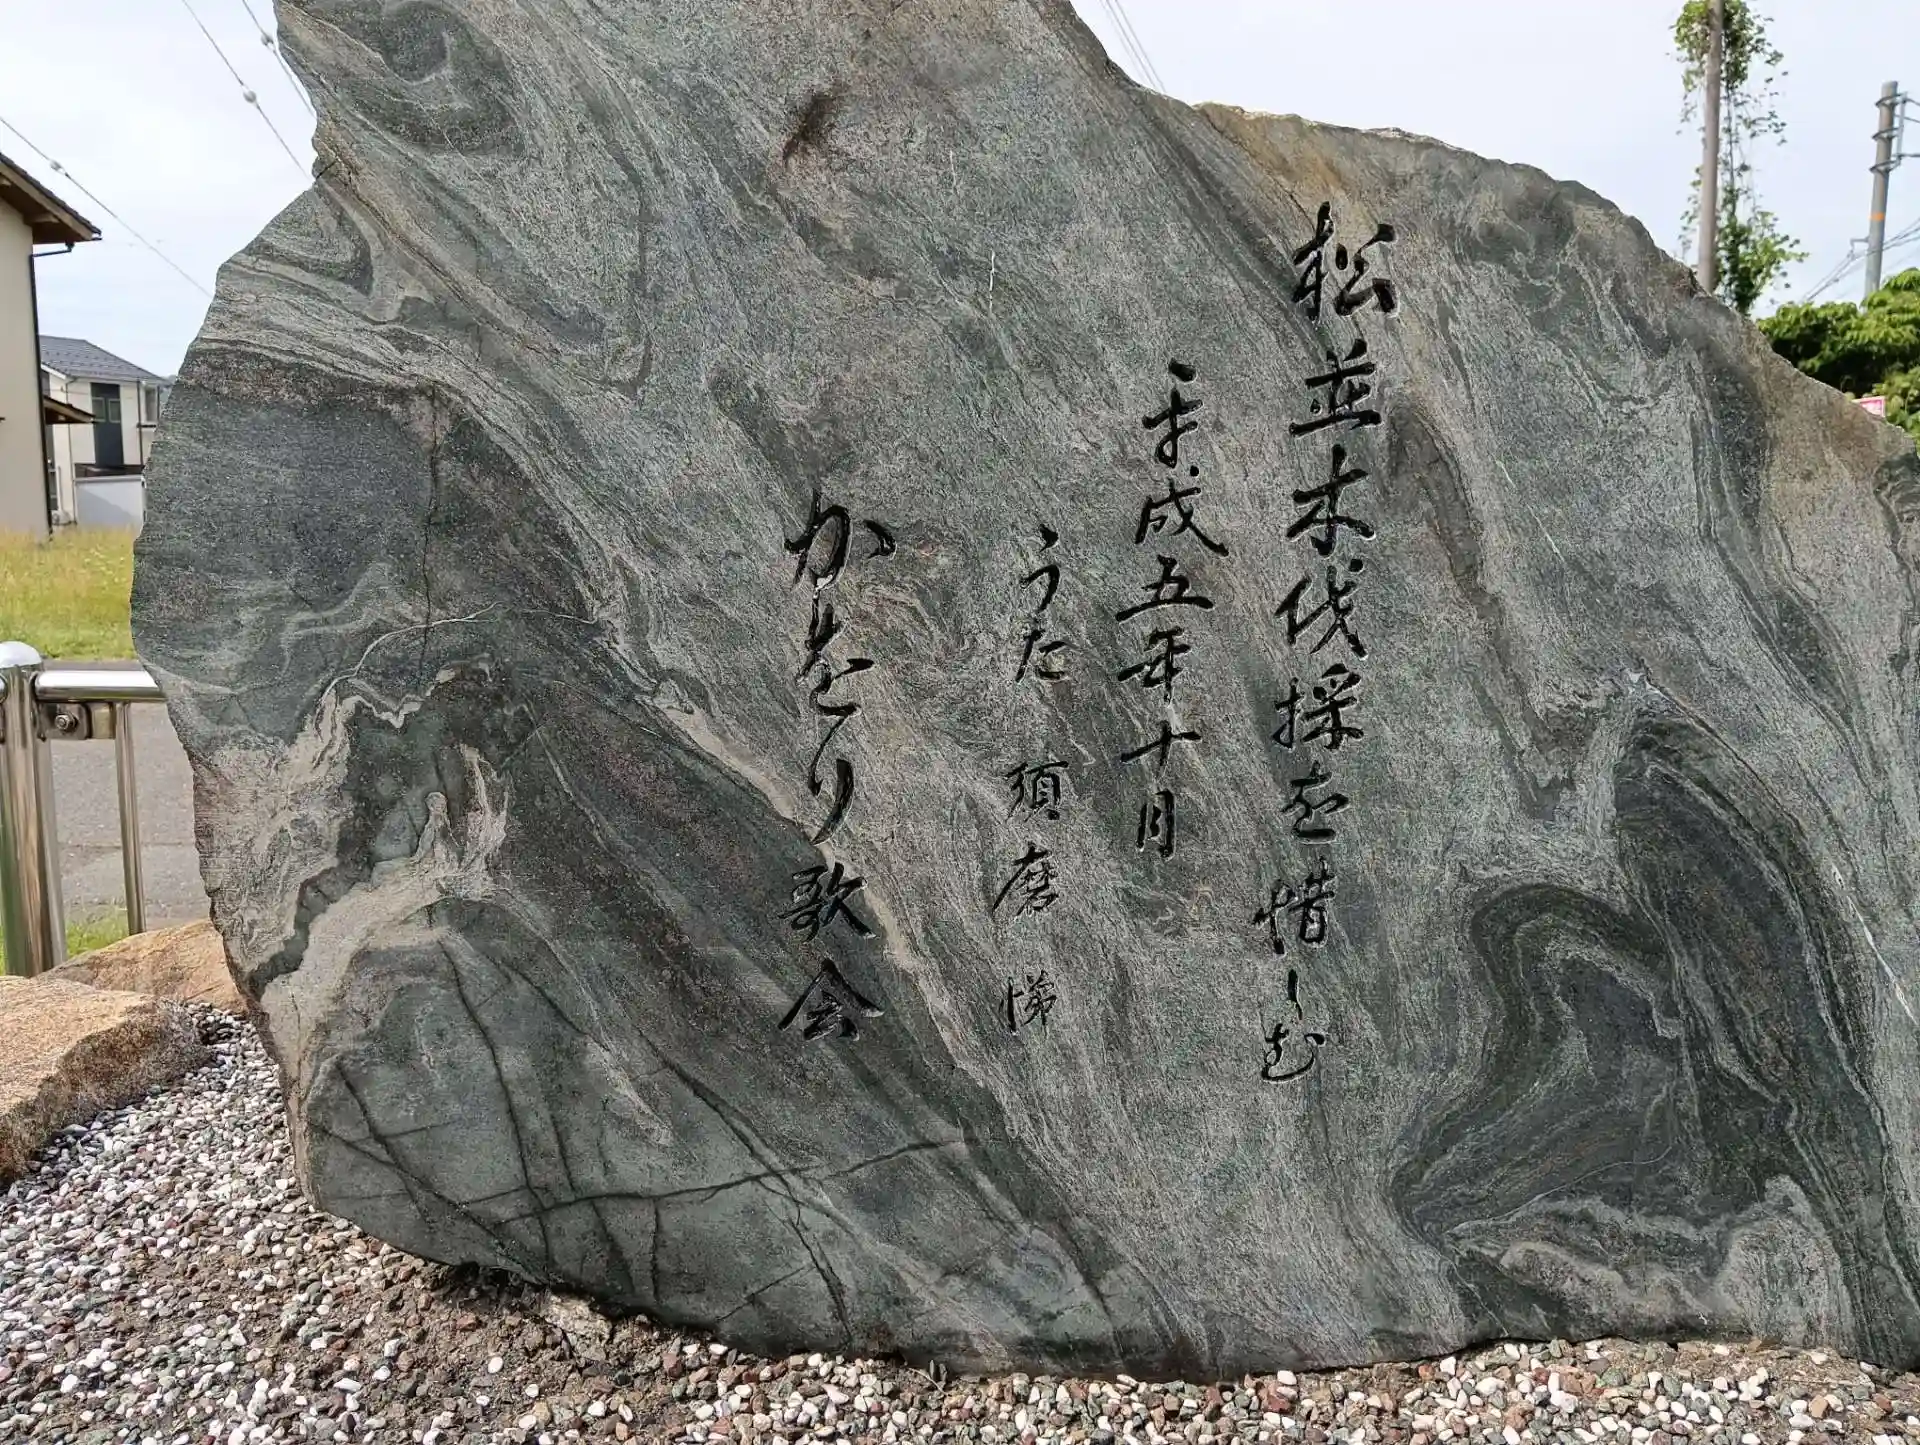 松並木伐採を惜しむ
平成五年十月
うた 須磨 悌
かをり歌会